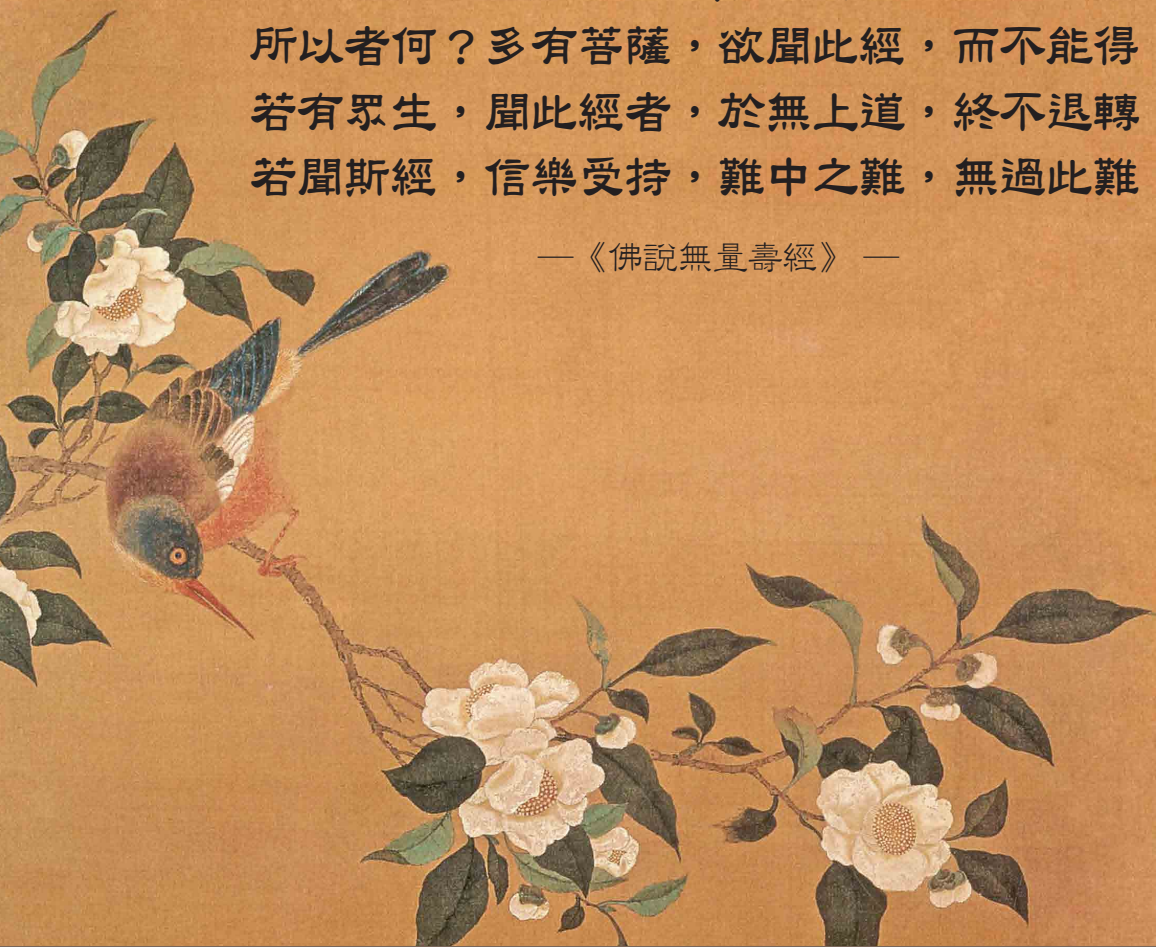 所以者何？多有菩薩，欲聞此經，而不能得
若有眾生，聞此經者，於無上道，終不退轉
若聞斯經，信樂受持，難中之難，無過此難
—《佛說無量壽經》—